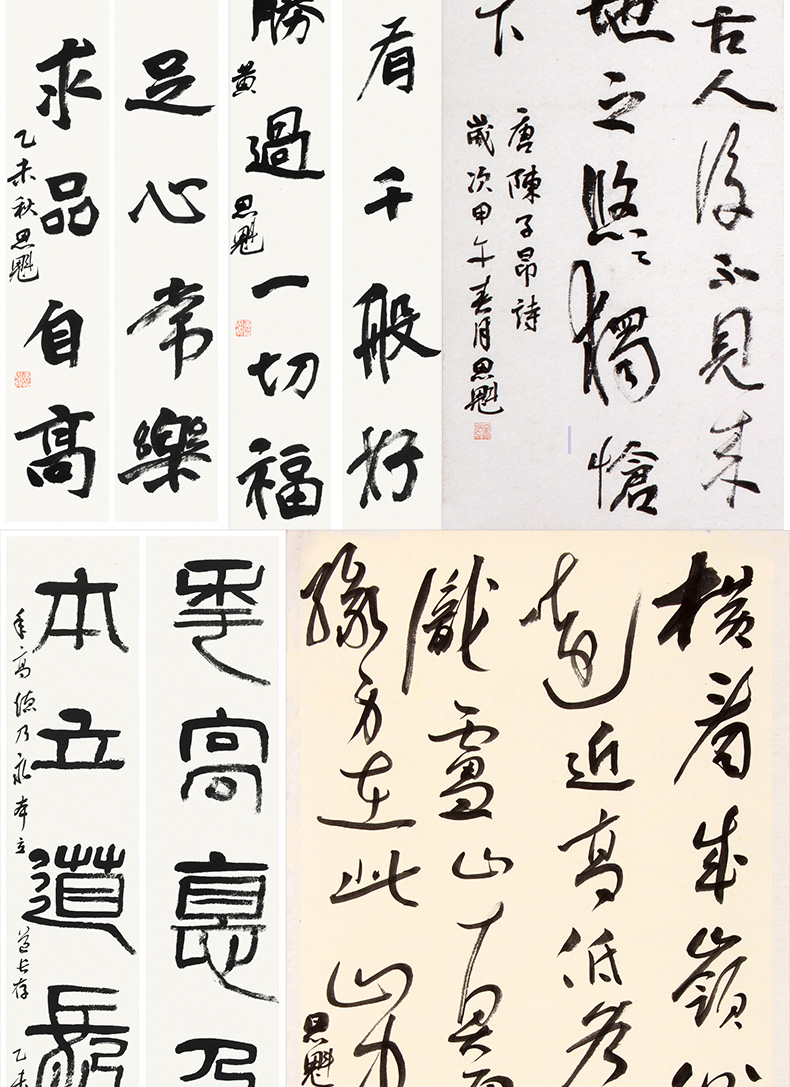 足心常樂
求品自高
乙未秋思魁
看千般好
勝過一切福
黄
思魁
古人後不見來
地之悠々獨愴
下
唐陳子昂詩
歲次甲午春月思魁
年高悳乃
本立道長
年高德乃永本立
道長存
乙未
橫看成嶺側
遠近高低各
識廬山真面
緣身在此山
思魁